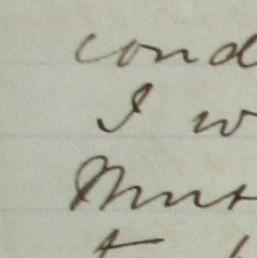 cond
I w
Must
t